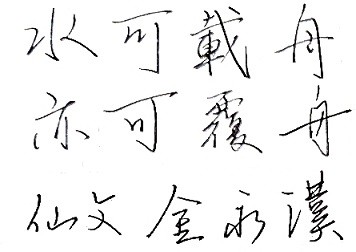 水可載舟
亦可覆舟
仙文金永漢